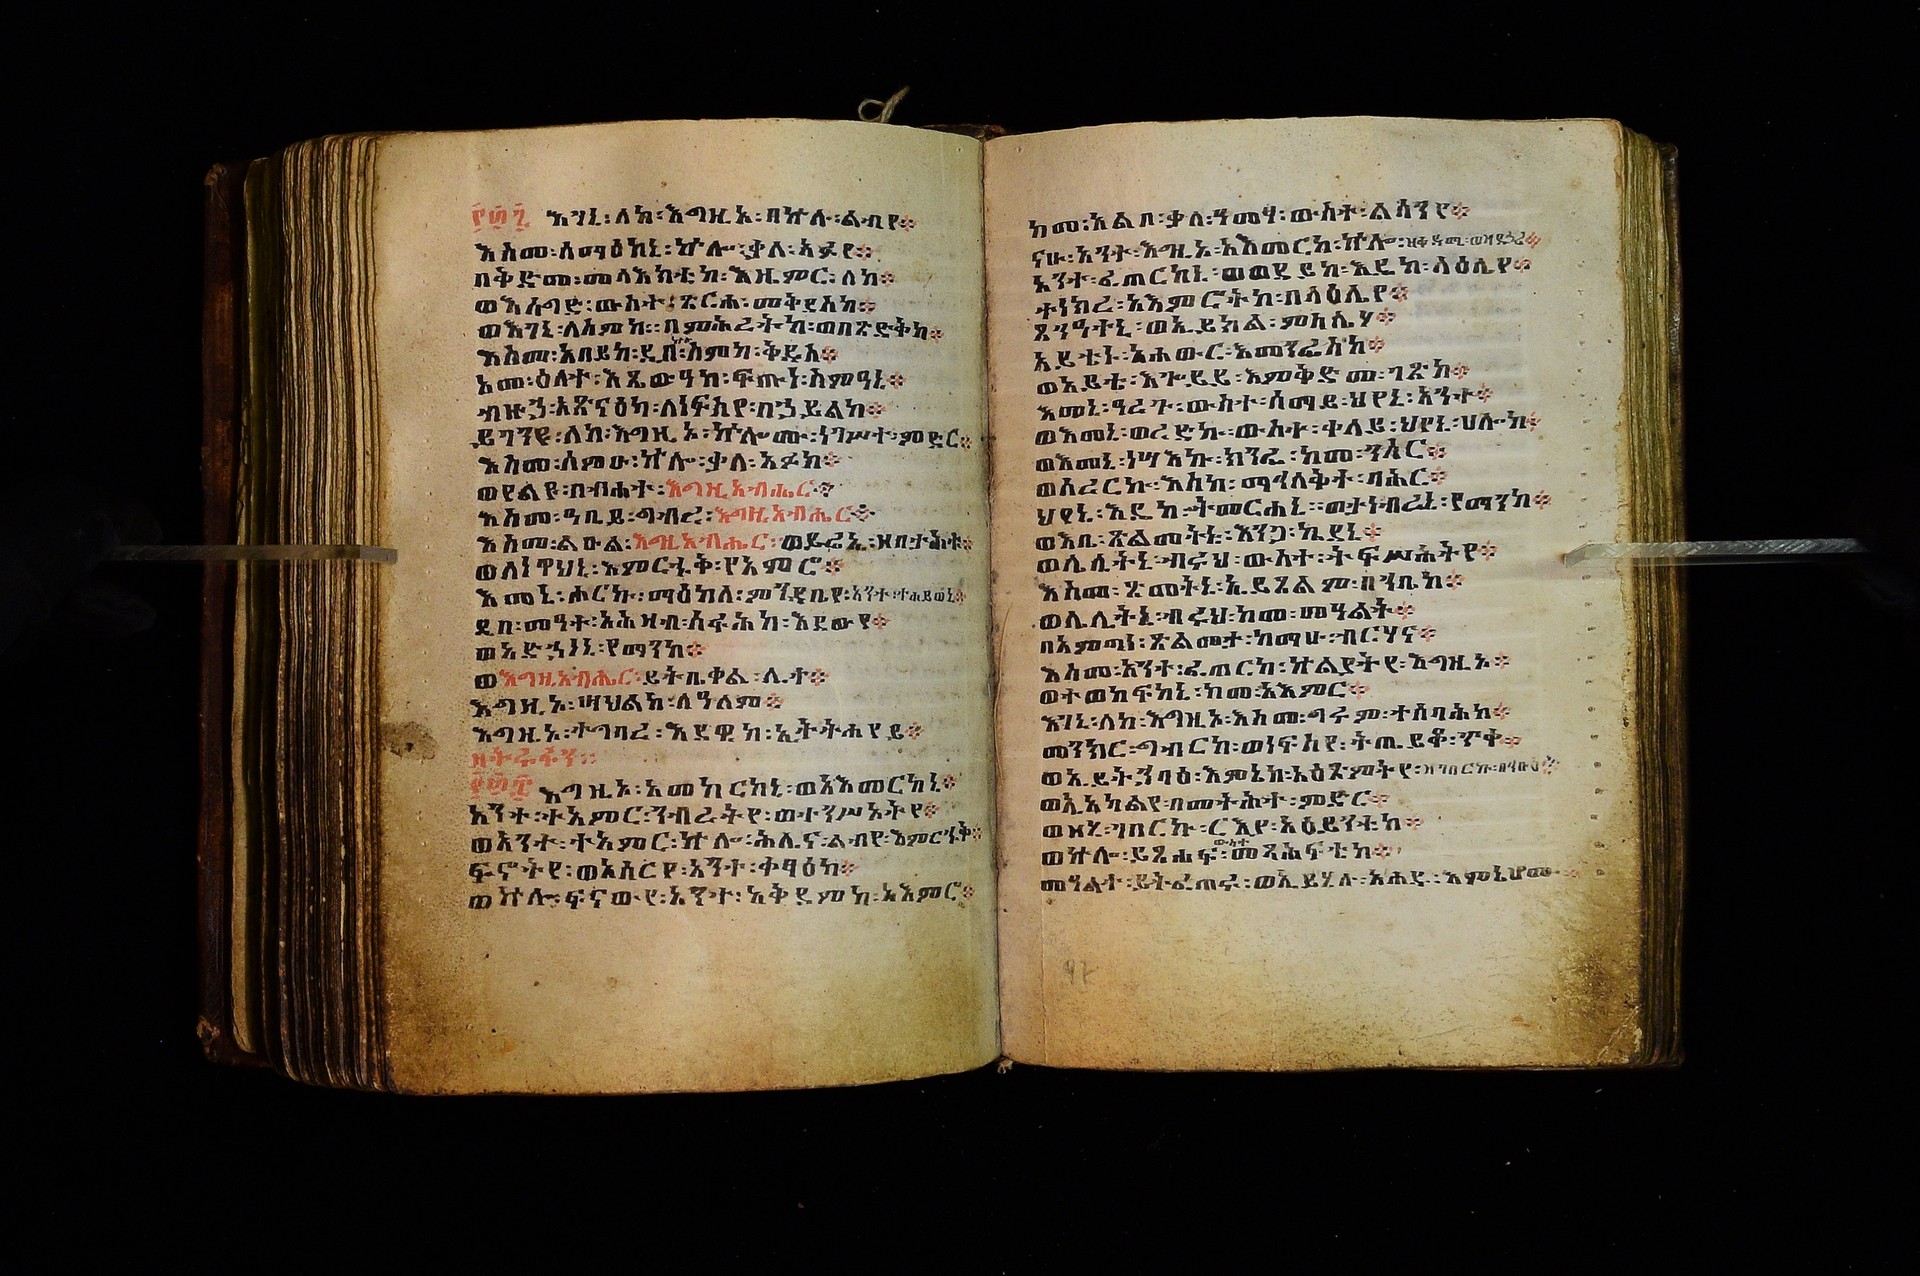 ፻፴፯ እገኒ፡ለከ፡እግዚኦ፡በኵሉ፡ልብየ።
እስመ፡ሰማዕከኒ፡ኵሎ፡ቃለ፡አፉየ።
በቅድመ፡መላእክቲከ፡እዜምር፡ለከ።
ወእሰግድ፡ውስተ፡ጽርሐ፡መቅደስከ።
ወእገኒ፡ለስምከ፡በምሕረትከ፡ወበጽድቅከ።
እስመ፡አበይከ፡ዲበ፡ስምከ፡ቅዱስ።
አመ፡ዕለተ፡እጼውዓከ፡ፍጡነ፡ስምዓኒ።
ብዙኃ፡አጽናዕካ፡ለነፍስየ፡በኃይልከ።
ይግንዩ፡ለከ፡እግዚኦ፡ኵሎሙ፡ነገሥተ፡ምድር።
እስመ፡ሰምዑ፡ኵሎ፡ቃለ፡አፉከ።
ወየልዩ፡በብሐተ፡እግዚአብሔር።
እስመ፡ዓቢይ፡ግብረ፡እግዚአብሔር።
እስመ፡ልዑል፡እግዚአብሔር፡ወይሬኢ፡ዘበታሕቱ።
ወለነዋኅኒ፡እምርኁቅ፡የአምሮ።
እመኒ፡ሖርኩ፡ማዕከለ፡ምንዳቤየ፡አንተ፡ተሐይወኒ።
ዲበ፡መዓተ፡አሕዛብ፡ሰፋሕከ፡እደዊየ።
ወአድኃነኒ፡የማንከ።
ወእግዚአብሔር፡ይትቤቀል፡ሊተ።
እግዚኦ፡ሣህልከ፡ለዓለም።
እግዚኦ፡ተግባረ፡እደዊከ፡ኢትትሐየይ።
፻፴፰ እግዚኦ፡አመከርከኒ፡ወአእመርከኒ።
አንተ፡ተአምር፡ንብረትየ፡ወተንሥኦትየ።
ወአንተ፡ተአምር፡ኵሎ፡ሕሊና፡ልብየ፡እምርኁቅ።
ፍኖትየ፡ወአሰርየ፡አንተ፡ቀፃዕከ።
ወኵሎ፡ፍናውየ፡አንተ፡አቅደምከ፡አእምሮ።
ከመ፡አልቦ፡ቃለ፡ዓመፃ፡ውስተ፡ልሳንየ።
ናሁ፡አንተ፡እግዚኦ፡አእመርከ፡ኵሎ፡ዘቀዳሚ፡ወዘደኃሪ።
አንተ፡ፈጠርከኒ፡ወወደይከ፡እዴከ፡ላዕሌየ።
ተነክረ፡አእምሮትከ፡በላዕሌየ።
ጸንዓተኒ፡ወኢይክል፡ምስሌሃ።
አይቴኑ፡አሐውር፡እመንፈስከ።
ወአይቴ፡እጐይይ፡እምቅድመ፡ገጽከ።
እመኒ፡ዓረጉ፡ውስተ፡ሰማይ፡ህየኒ፡አንተ።
ወእመኒ፡ወረድኩ፡ውስተ፡ቀላይ፡ህየኒ፡ሀሎከ።
ወእመኒ፡ነሣእኩ፡ክንፈ፡ከመ፡ንስር።
ወሰረርኩ፡እስከ፡ማኅለቅተ፡ባሕር።
ህየኒ፡እዴከ፡ትመርሐኒ፡ወታነብረኒ፡የማንከ።
ወእቤ፡ጽልመትኑ፡እንጋ፡ኬደኒ።
ወሌሊትኒ፡ብሩህ፡ውስተ፡ትፍሥሕትየ።
እስመ፡ጽልመትኒ፡ኢይጸልም፡በኀቤከ።
ወሌሊትኒ፡ብሩህ፡ከመ፡መዓልት።
በአምጣነ፡ጽልመታ፡ከማሁ፡ብርሃና።
እስመ፡አንተ፡ፈጠርከ፡ኵልያትየ፡እግዚኦ።
ወተወከፍከኒ፡ከመ፡አእምር።
እገኒ፡ለከ፡እግዚኦ፡እስመ፡ግሩም፡ተሰባሕከ።
መንክር፡ግብርከ፡ወነፍስየ፡ትጤይቆ፡ጥቀ።
ወኢይትኃባዕ፡እምኔከ፡አዕጽምትየ፡ዘገበርከ፡በኅቡዕ።
ወኢአካልየ፡በመትሕተ፡ምድር።
ወዘኒ፡ገበርኩ፡ርእየ፡አዕይንቲከ።
ወኵሎ፡ይጼሐፍ፡ውስተ፡መጻሕፍቲከ።
መዓልተ፡ይትፈጠሩ፡ወኢይሄሉ፡አሐዱ፡እምኔሆሙ።
97